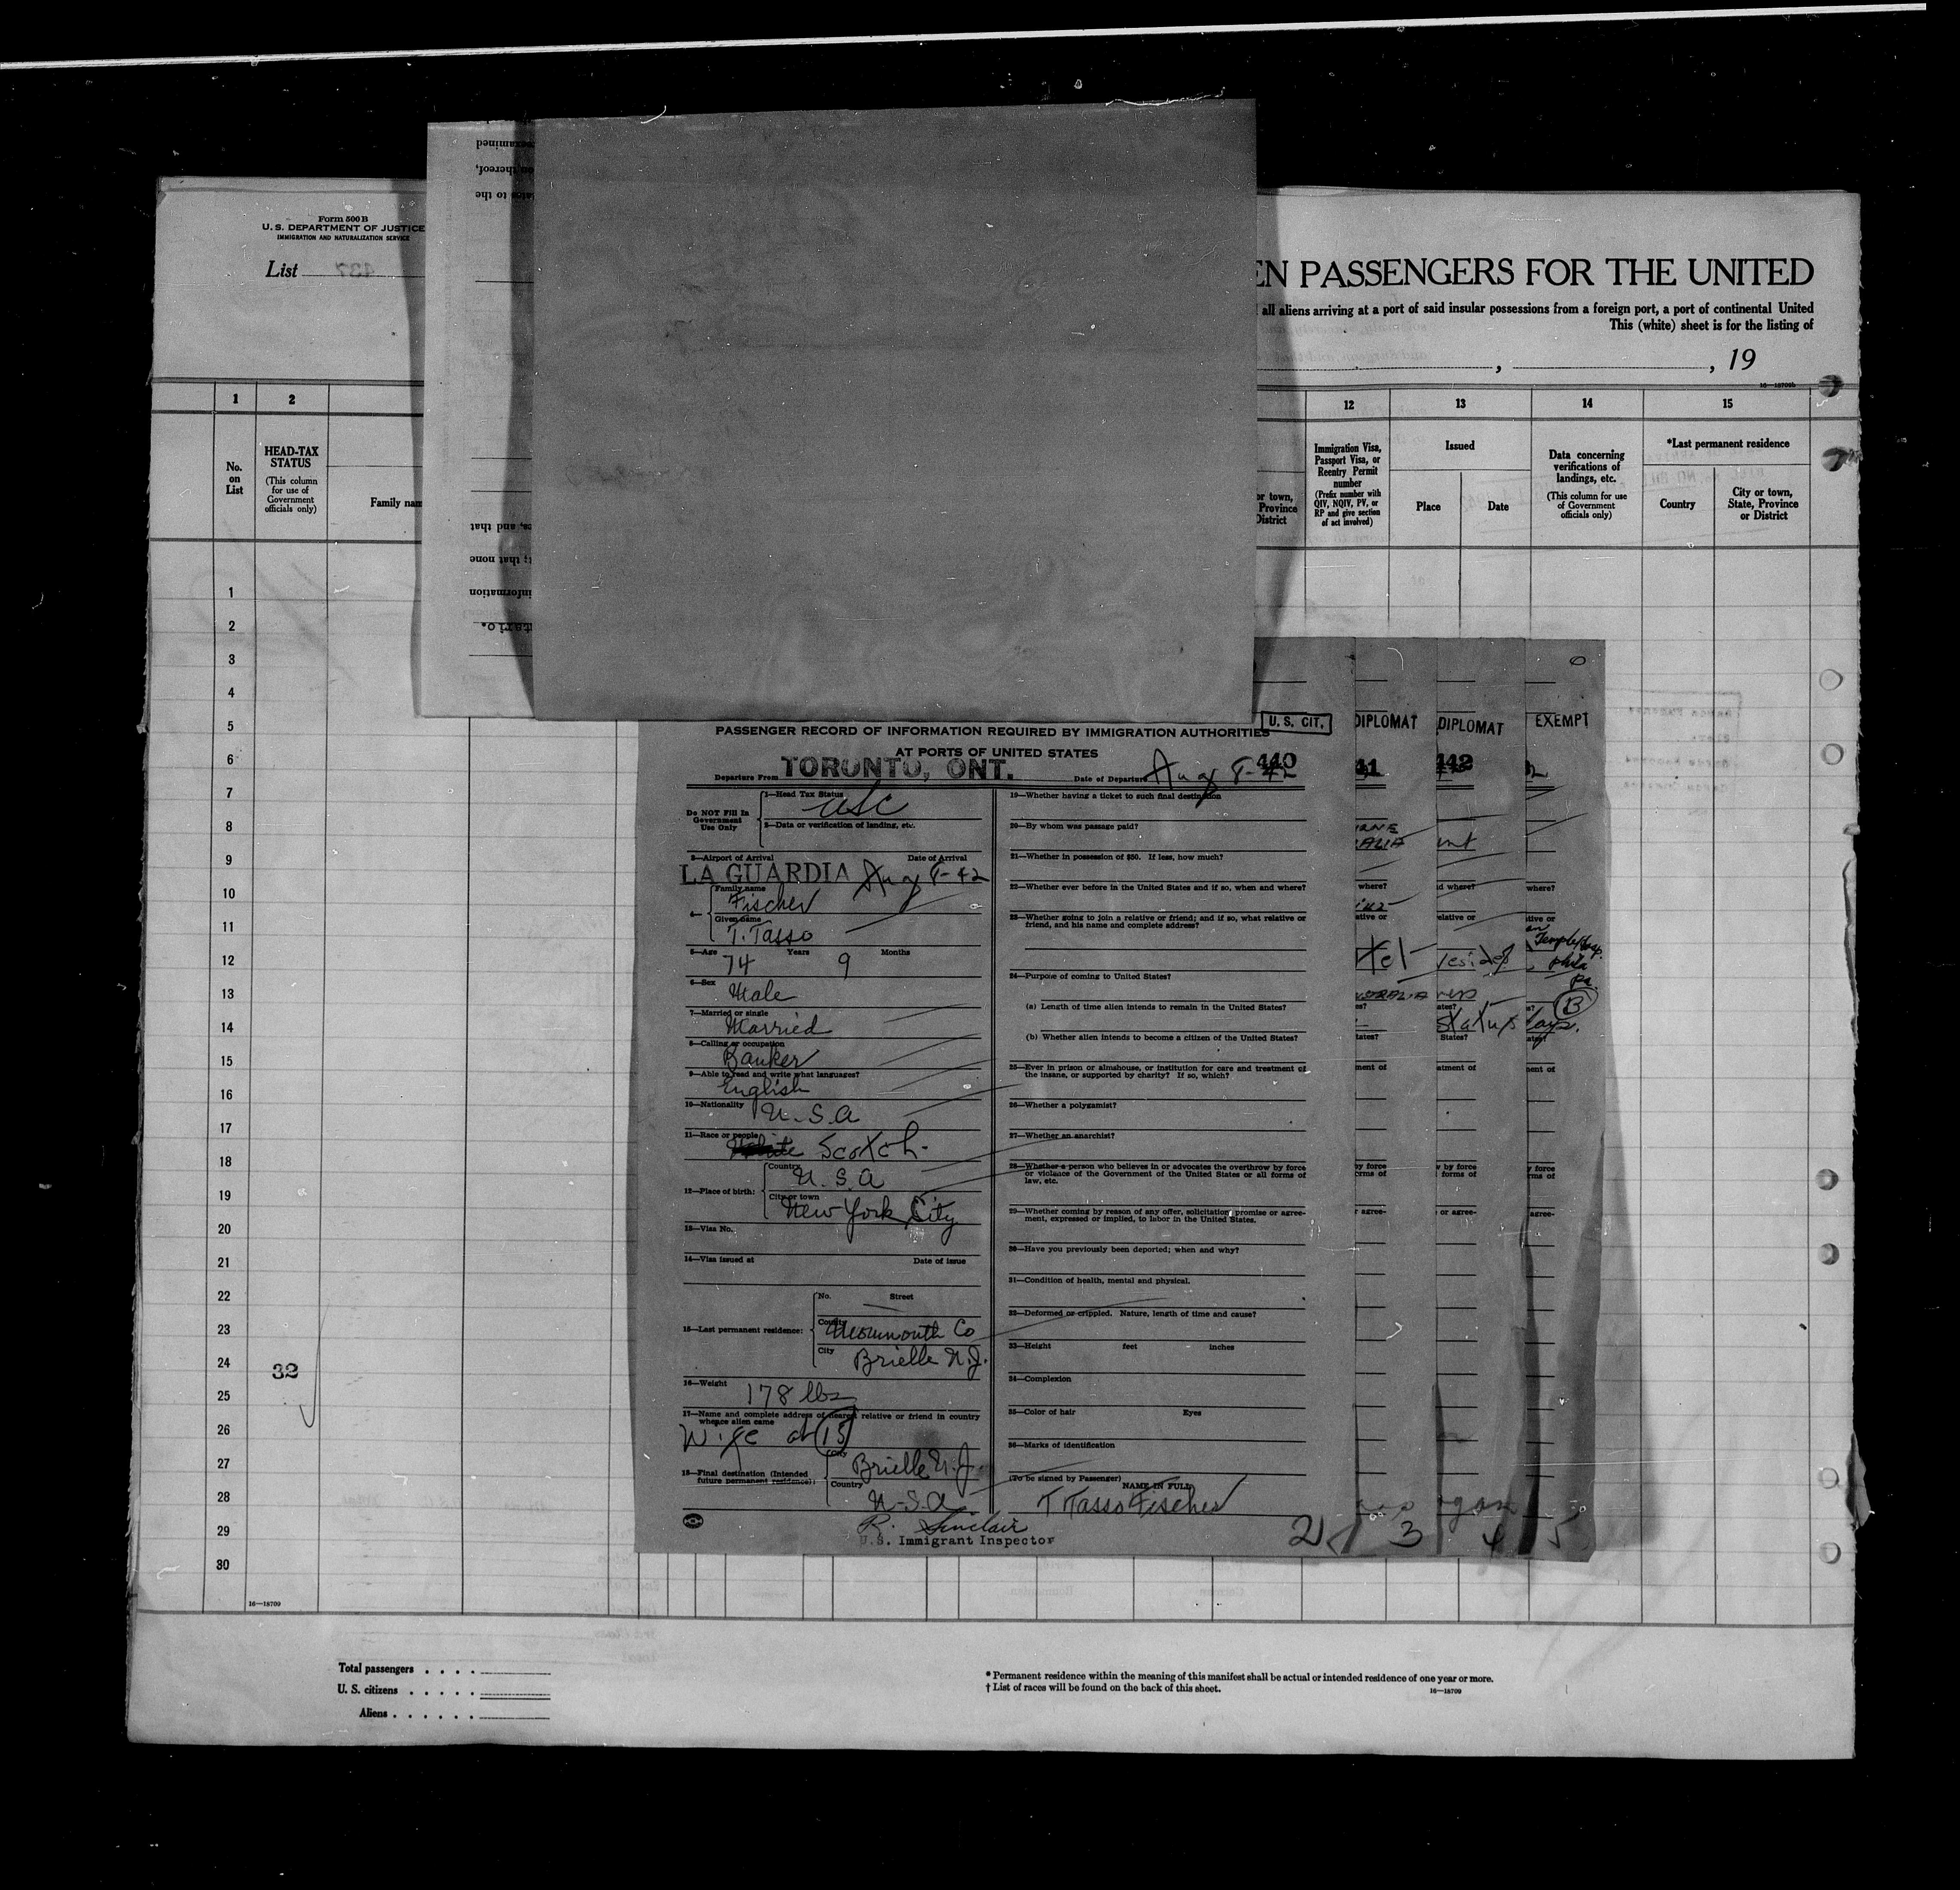 Form 500 B
U. S. DEPARTMENT OF JUSTICE
IMMIGRATION AND NATURALIZATION SERVICE
List
examined
thereof,
to the
and that
that none
information
EN PASSENGERS FOR THE UNITED
all aliens arriving at a port of said insular possessions from a foreign port, a port of continental United
This (white) sheet is for the listing of
, , 19
1 2 12 13 14 15
No. on List
HEAD-TAX STATUS
(This column for use of Government officials only)
Family nam
or town, Province District
Immigration Visa, Passport Visa, or Reentry Permit number
(Prefix number with QIV, NQIV, PV, or RP and give section of act involved)
Issued
Place Date
Data concerning verifications of landings, etc.
(This column for use of Government officials only)
*Last permanent residence
Country
City or town, State, Province or District
1
2
3
4
5
6
7
8
9
10
11
12
13
14
15
16
17
18
19
20
21
22
23
24
25
26
27
28
29
30
32
16—18709
U. S. CIT.
PASSENGER RECORD OF INFORMATION REQUIRED BY IMMIGRATION AUTHORITIES
AT PORTS OF UNITED STATES
Departure From TORONTO, ONT. Date of Departure Aug 8-42
440
Do NOT Fill In Government Use Only
1—Head Tax Status USC
2—Data or verification of landing, etc.
3—Airport of Arrival Date of Arrival
LA GUARDIA Aug 8-42
4— Family name
Fischer
Given name
T. Tasso
5—Age Years Months
74 9
6—Sex
Male
7—Married or single
Married
8—Calling or occupation
Banker
9—Able to read and write what languages?
English
10—Nationality U.S.A
11—Race or people Scotch
12—Place of birth: Country
U.S.A
City or town
New York City
13—Visa No.
14—Visa issued at Date of issue
15—Last permanent residence: No. Street
County Monmouth Co
City Brielle N.J.
16—Weight 178 lbs
17—Name and complete address of nearest relative or friend in country whence alien came
Wife at (15)
18—Final destination (Intended future permanent residence): City Brielle N.J.
Country U.S.A
R. Sinclair
U.S. Immigrant Inspector
19—Whether having a ticket to such final destination
20—By whom was passage paid?
21—Whether in possession of $50. If less, how much?
22—Whether ever before in the United States and if so, when and where?
23—Whether going to join a relative or friend; and if so, what relative or
friend, and his name and complete address?
24—Purpose of coming to United States?
(a) Length of time alien intends to remain in the United States?
(b) Whether alien intends to become a citizen of the United States?
25—Ever in prison or almshouse, or institution for care and treatment of
the insane, or supported by charity? If so, which?
26—Whether a polygamist?
27—Whether an anarchist?
28—Whether a person who believes in or advocates the overthrow by force
or violence of the Government of the United States or all forms of
law, etc.
29—Whether coming by reason of any offer, solicitation, promise or agree-
ment, expressed or implied, to labor in the United States.
30—Have you previously been deported; when and why?
31—Condition of health, mental and physical.
32—Deformed or crippled. Nature, length of time and cause?
33—Height feet inches
34—Complexion
35—Color of hair Eyes
36—Marks of identification
(To be signed by Passenger)
NAME IN FULL
T Tasso Fischer
2
DIPLOMAT
41
where?
ative or
tates?
ment of
by force
rms of
r agree-
3
DIPLOMAT
442
d where?
elative or
status
States?
atment of
w by force
forms of
or agree-
4
EXEMPT
where?
tive or
Temple Hosp.
Phila
Pa.
B
days.
ment of
y force
rms of
agree-
5
Total passengers . . . .
U. S. citizens . . . . .
Aliens . . . . . .
* Permanent residence within the meaning of this manifest shall be actual or intended residence of one year or more.
† List of races will be found on the back of this sheet.
16—18709